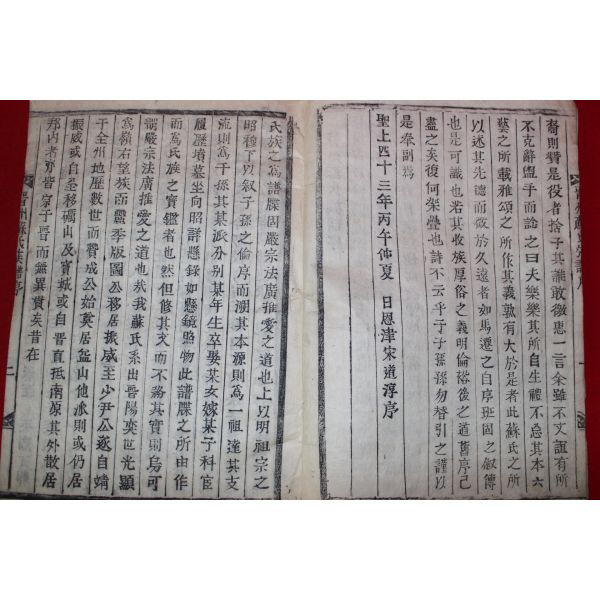 裔則贊是役者捨子其誰敢徼惠一言余雖不文誼有所
不克辭盥手而諗之曰大樂樂其所自生禮不忘其本六
藝之所載雅頌之所作其義孰有大於是者此蘇氏之所
以述其先德而徵於久遠者如馬遷之自序班固之叙傳
也是可識也若其收族厚俗之義明倫裕後之道舊序已
盡之矣復何架疊也詩不云乎子子孫孫勿替引之謹以
是奉副焉
聖上四十三年丙午仲夏 日恩津宋道淳序
氏族之爲譜牒固嚴宗法廣推愛之道也上以明祖宗之
昭穆下以叙子孫之倫序而溯其本源則爲一祖達其支
流則爲千孫其某派分別某年生卒娶某女嫁某子科宦
履歷墳墓坐向昭詳懸錄如懸鏡照物此譜牒之所由作
而爲氏族之寶鑑者也然但修其支而不務其實則烏可
謂嚴宗法廣推愛之道也哉我蘇氏系出晋陽奕世光顯
爲嶺右望族而麗季版圖公移居振威至少尹公遂自靖
于全州地歷數世而贊成公始奠居益山他派則或仍居
振威或自益移礪山及寶城或自晋直抵南原其外散居
邦內者亦皆寧子晋而無異貫矣昔在
晋州蘇氏族譜序
二